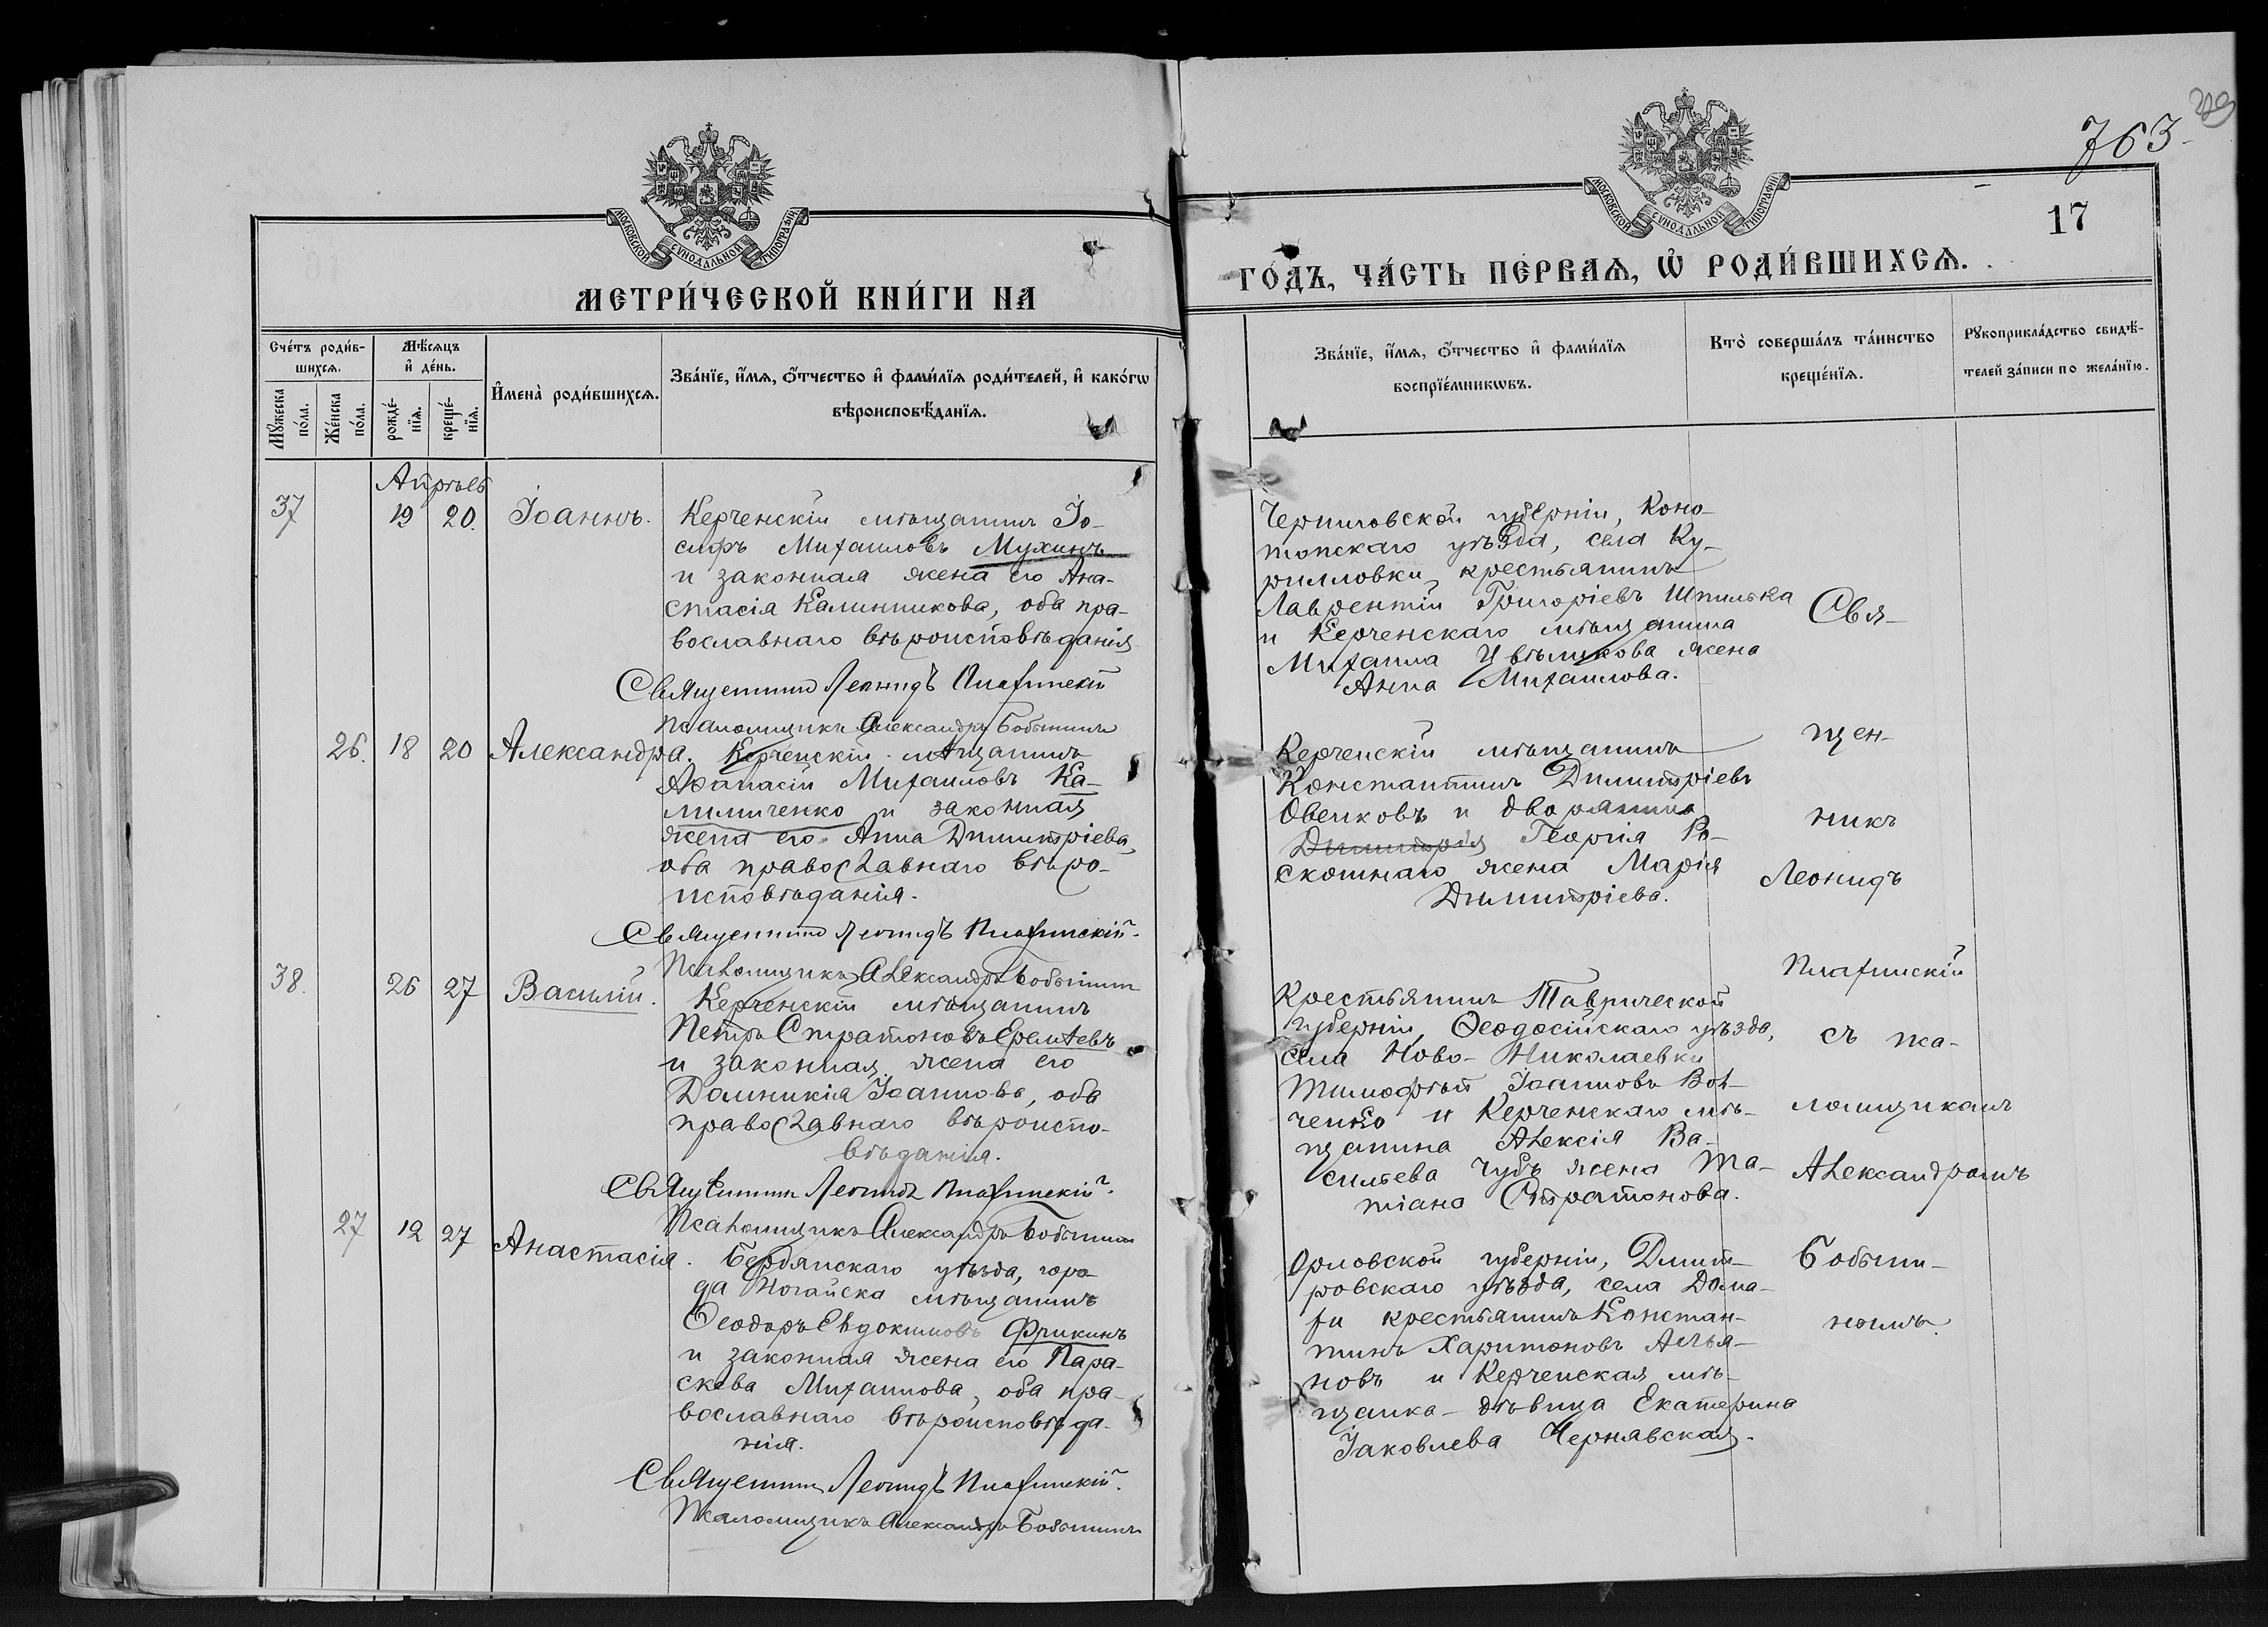 763
17
МОСКОВСКОЙ СѴНОДАЛЬНОЙ ТИПОГРАФІИ
МЕТРИ́ЧЕСКОЙ КНИ́ГИ НА
Сче́тъ роди́в-
шихсѧ.
Мѣ́сѧцъ
и҆ де́нь.
Мꙋ́жеска
по́ла.
Же́нска
по́ла.
рожде́-
нїѧ.
креще́-
нїѧ.
И҆мена̀ роди́вшихсѧ.
Зва́нїе, и҆́мѧ, ѻ҆́тчество и҆ фами́лїѧ роди́телей, и҆ како́гѡ
вѣроисповѣ́данїѧ.
Апрѣль
37
19
20.
Іоаннъ.
Керченскій мѣщанинъ Іо-
сифъ Михаиловъ Мухинъ
и законная жена его Ана-
стасія Калинникова, оба пра-
вославнаго вѣроисповѣданія
Священникъ Леонидъ
Псаломщикъ Александръ Бобынинъ
26.
18
20
Александра.
Керченскій мѣщанинъ
Аѳанасій Михаиловъ Ка-
линиченко и законная
жена его Анна Димитріева,
оба православнаго вѣро-
исповѣданія.
Священникъ Леонидъ
Псаломщикъ Александръ Бобынинъ
38.
26
27
Василій.
Керченскій мѣщанинъ
Петръ Стратоновъ Еремѣевъ
и законная жена его
Домникія Іоаннова, оба
православнаго вѣроиспо-
вѣданія.
Священникъ Леонидъ
Псаломщикъ Александръ Бобынинъ
27
12
27
Анастасія.
Бердянскаго уѣзда, горо-
да Ногайска мѣщанинъ
Ѳеодоръ Евдокимовъ Фрикинъ
и законная жена его Пара-
скева Михаилова, оба пра-
вославнаго вѣроисповѣда-
нія.
Священникъ Леонидъ
Псаломщикъ Александръ Бобынинъ
МОСКОВСКОЙ СѴНОДАЛЬНОЙ ТИПОГРАФІИ
ГО́ДЪ, ЧА́СТЬ ПЕ́РВАѦ, Ѡ҆ РОДИ́ВШИХСѦ.
Зва́нїе, и҆́мѧ, ѻ҆́тчество и҆ фами́лїѧ
воспрїе́мникѡвъ.
Кто̀ соверша́лъ та́инство
креще́нїѧ.
Рꙋкоприкла́дство свидѣ́-
телей за́писи по жела́нїю.
Черниговской губерніи, Коно-
топскаго уѣзда, села Ку-
рилловки крестьянинъ
Лаврентій Григоріевъ Шпилька
и Керченскаго мѣщанина
Михаила Цвѣтикова жена
Анна Михаилова.
Керченскій мѣщанинъ
Константинъ Димитріевъ
Овенковъ и дворянина
Димитрія Георгія Ро-
скошнаго жена Марія
Димитріева.
Крестьянинъ Таврической
губерніи, Ѳеодосійскаго уѣзда,
села Ново-Николаевки
Тимофѣй Іоанновъ Вол-
ченко и Керченскаго мѣ-
щанина Алексія Ва-
сильева Чубъ жена Та-
тіана Стратонова.
Орловской губерніи, Дмит-
ровскаго уѣзда, села Дома-
хи крестьянинъ Констан-
тинъ Харитоновъ
новъ и Керченская мѣ-
щанка-дѣвица Екатерина
Іаковлева Чернявская.
Свя-
щен-
никъ
Леонидъ
съ пса-
ломщикомъ
Александромъ
Бобыни-
нымъ.